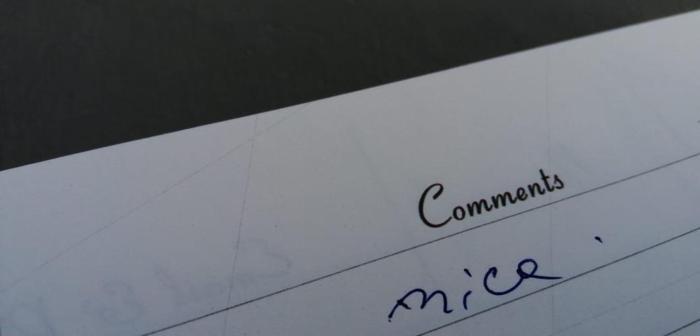 Comments
nice.